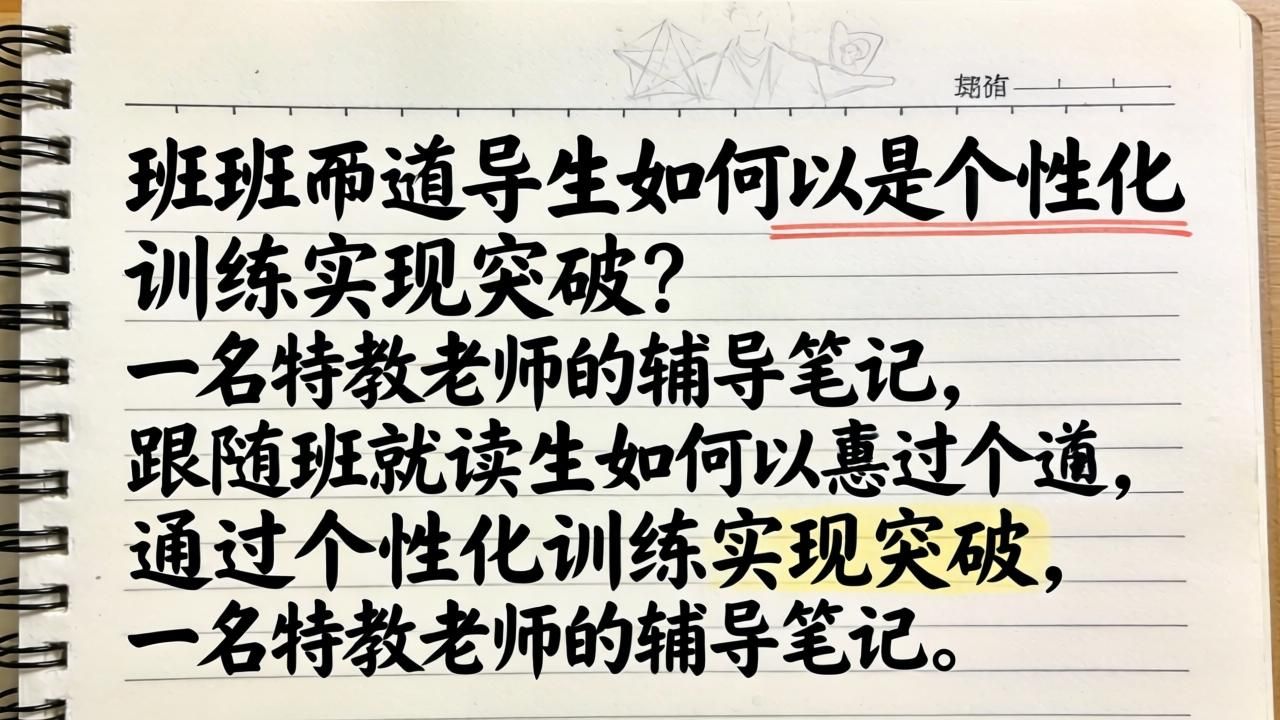 班班而道导生如何以是个性化
训练实现突破？
一名特教老师的辅导笔记，
跟随班就读生如何以惠过个道，
通过个性化训练实现突破，
一名特教老师的辅导笔记。